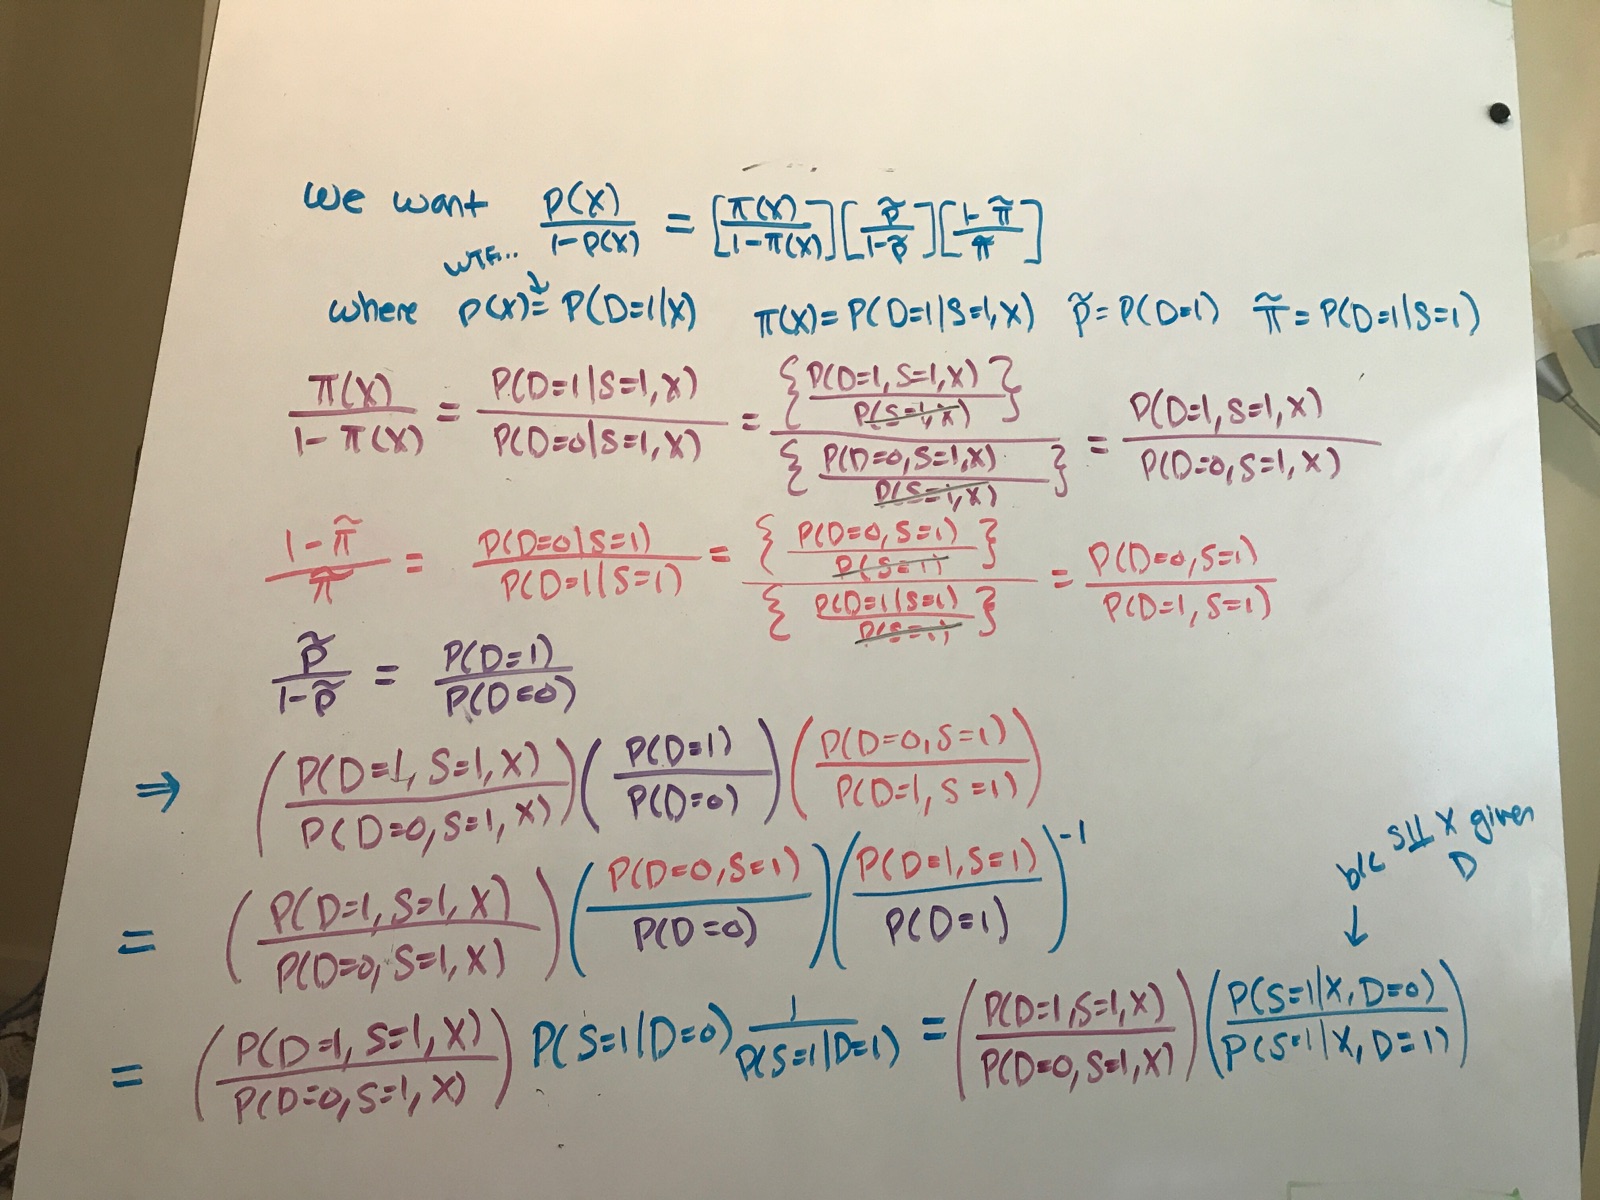 We want p(X)/(1-p(X)) = [π(X)/(1-π(X))][p̃/(1-p̃)][(1-π̃)/π̃]
WTF...
where p(X) = P(D=1|X) π(X) = P(D=1|S=1,X) p̃ = P(D=1) π̃ = P(D=1|S=1)
π(X)/(1-π(X)) = P(D=1|S=1,X)/P(D=0|S=1,X) = {P(D=1,S=1,X)/P(S=1,X)}/{P(D=0,S=1,X)/P(S=1,X)} = P(D=1,S=1,X)/P(D=0,S=1,X)
(1-π̃)/π̃ = P(D=0|S=1)/P(D=1|S=1) = {P(D=0,S=1)/P(S=1)}/{P(D=1|S=1)/P(S=1)} = P(D=0,S=1)/P(D=1,S=1)
p̃/(1-p̃) = P(D=1)/P(D=0)
⇒ (P(D=1,S=1,X)/P(D=0,S=1,X))(P(D=1)/P(D=0))(P(D=0,S=1)/P(D=1,S=1))
= (P(D=1,S=1,X)/P(D=0,S=1,X))(P(D=0,S=1)/P(D=0))(P(D=1,S=1)/P(D=1))^-1
b/c S⫫X given
D
↓
= (P(D=1,S=1,X)/P(D=0,S=1,X)) P(S=1|D=0) 1/P(S=1|D=1) = (P(D=1,S=1,X)/P(D=0,S=1,X))(P(S=1|X,D=0)/P(S=1|X,D=1))